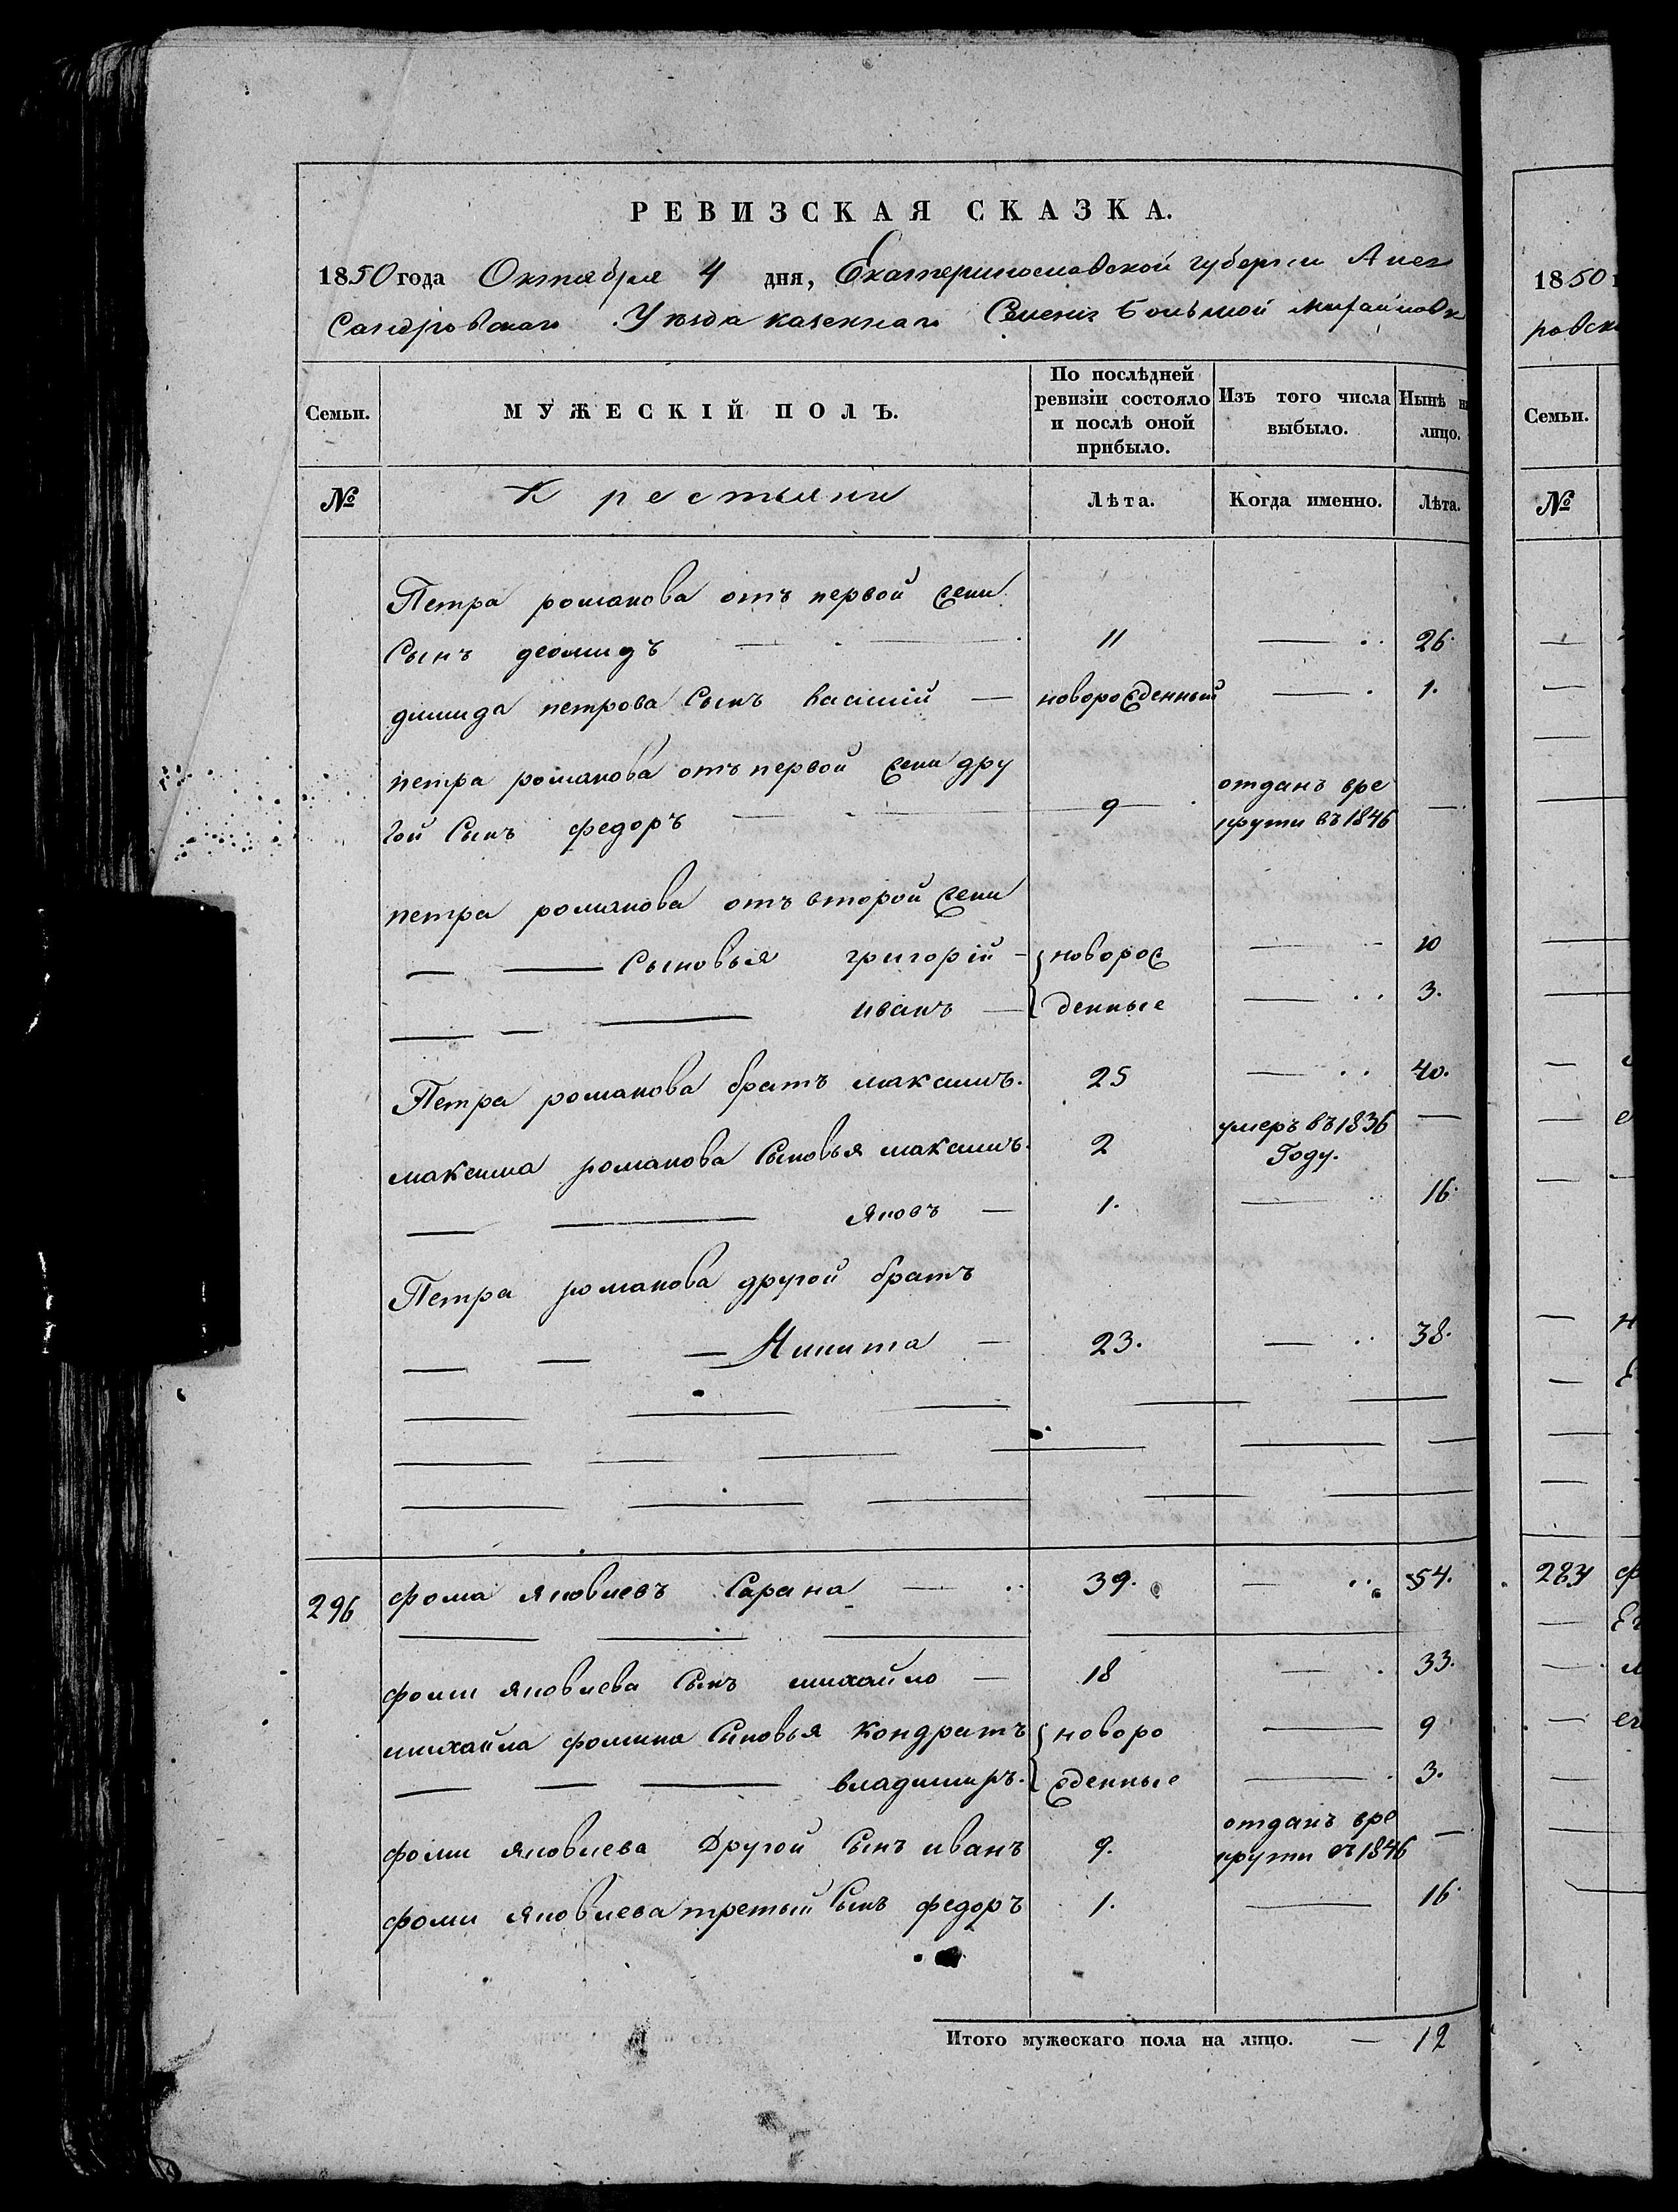 РЕВИЗСКАЯ СКАЗКА.
1850 года Октября 4 дня, Екатеринославской губернии Алек
сандровскаго Уѣзда казеннаго Селенія Большой Михайловки
Семьи.
МУЖЕСКІЙ ПОЛЪ.
По послѣдней ревизіи состояло и послѣ оной прибыло.
Изъ того числа выбыло.
Нынѣ н
лицо.
№ Крестьяни Лѣта. Когда именно. Лѣта.
Петра романова отъ первой жени
Сынъ деомидъ — 11 — 26.
димида петрова Сынъ василій — новорожденный — 1.
петра романова отъ первой жени дру
гой Сынъ федоръ — 9 отданъ вре
крути въ 1846 —
петра романова отъ второй жени
— — Сыновья григорій — новорож — 10
— — — иванъ — денные — 3.
Петра романова братъ максимъ. 25 — 40.
максима романова Сыновья максимъ. 2 умеръ въ 1836
Году. —
— — яковъ — 1. — 16.
Петра романова другой братъ
— — — Никита — 23. — 38.
296 фома яковлевъ Сарана — 39. — 54.
фоми яковлева Сынъ михайло — 18 — 33.
михайла фомина Сыновья кондратъ новоро — 9
— — — владимиръ. жденные — 3.
фоми яковлева Другой Сынъ иванъ 9. отданъ вре
крути въ 1846 —
фоми яковлева третьий Сынъ федоръ 1. — 16.
Итого мужескаго пола на лицо. — 12
1850
ровск
Семьи.
№
283